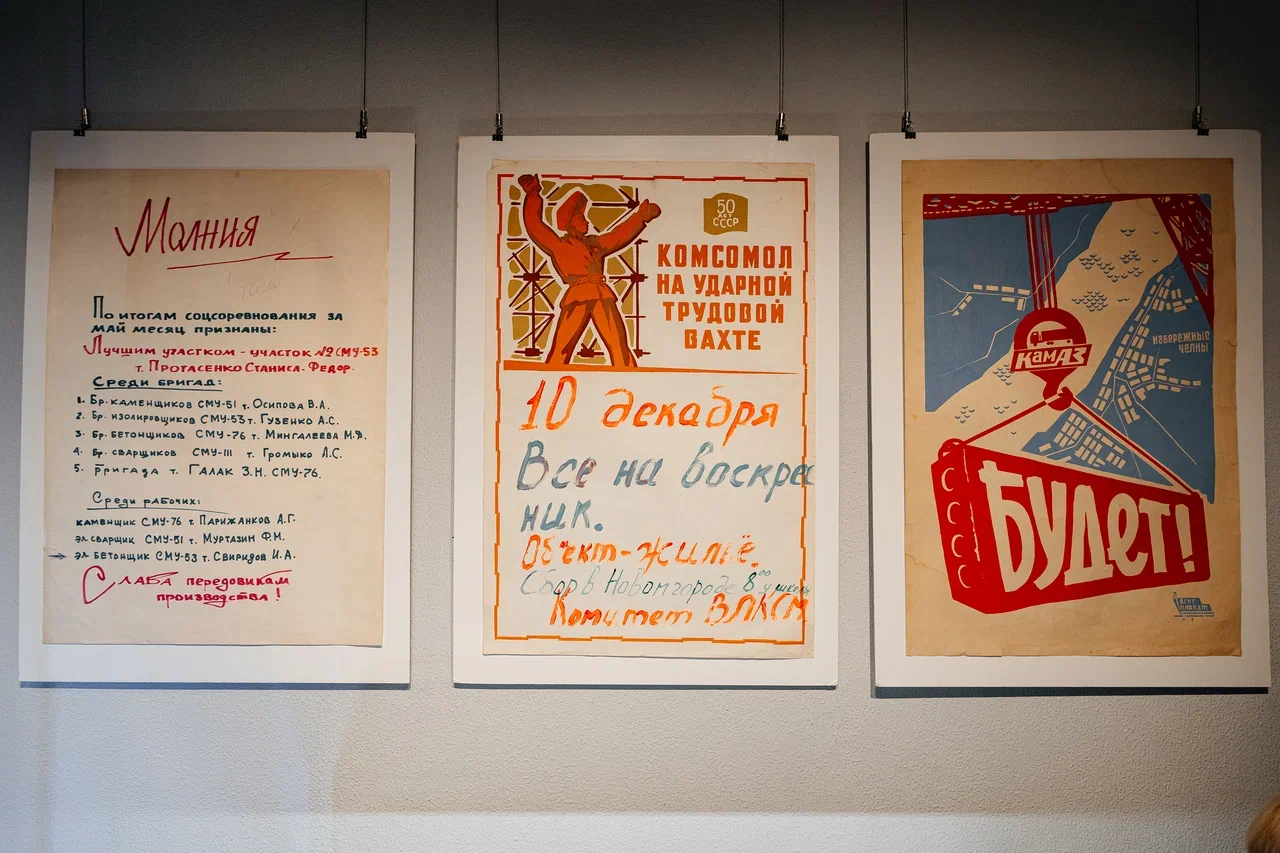 Молния
По итогам соцсоревнования за
май месяц признаны:
Лучшим участком - участок №2 СМУ-53
т. Протасенко Станисл. Федор.
Среди бригад:
1. Бр. каменщиков СМУ-51 т. Осипова В.А.
2. Бр. изолировщиков СМУ-53 т. Гузенко А.С.
3. Бр. бетонщиков СМУ-76 т. Мингалеева М.Ф.
4. Бр. сварщиков СМУ-111 т. Громыко Л.С.
5. Бригада т. Галак З.Н. СМУ-76.
Среди рабочих:
каменщик СМУ-76 т. Парижанков А.Г.
эл сварщик СМУ-51 т. Муртазин Ф.М.
эл бетонщик СМУ-53 т. Свиридов И.А.
Слава передовикам
производства!
50
ЛЕТ
СССР
КОМСОМОЛ
НА УДАРНОЙ
ТРУДОВОЙ
ВАХТЕ
10 декабря
Все на воскрес
ник.
Объект-жильё.
Сбор в Новом городе 8⁰⁰ у школы
Комитет ВЛКСМ
КАМАЗ
набережные
челны
БУДЕТ!
АГИТ
ПЛАКАТ